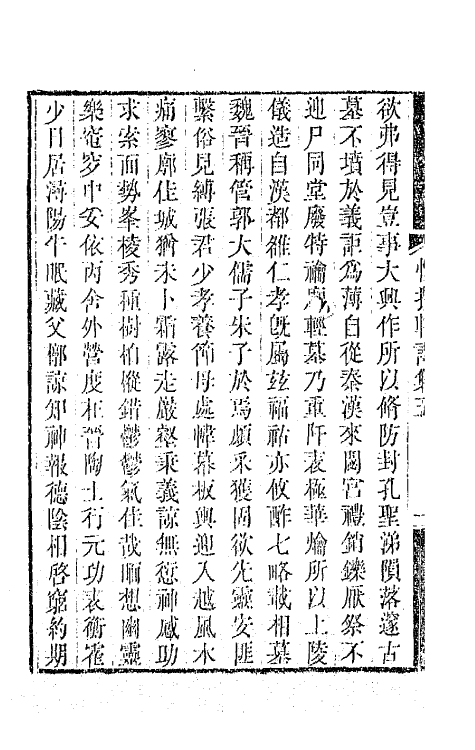 欲弗得見豈事大興作所以脩防封孔聖涕隕落邃古
墓不墳於義詎爲薄自從秦漢來閟宮禮銷鑠厭祭不
迎尸同堂廢特禴廟輕墓乃重阡表極華爚所以上陵
儀造自漢都雒仁孝旣屬茲福祜亦攸酢七略載相墓
魏晉稱管郭大儒子朱子於焉頗采獲固欲先靈安匪
繫俗見縛張君少孝養節母處幃幕板輿迎入越風木
痛寥廓佳城猶未卜霜露走嚴壑秉義諒無愆神感功
求索面勢峯棱秀種樹柏樅錯鬱鬱氣佳哉緬想幽靈
樂窀穸中安依丙舍外營度在晉陶士行元功表衡霍
少日居潯陽牛眠藏父槨諒知神報德陰相啓窮約期